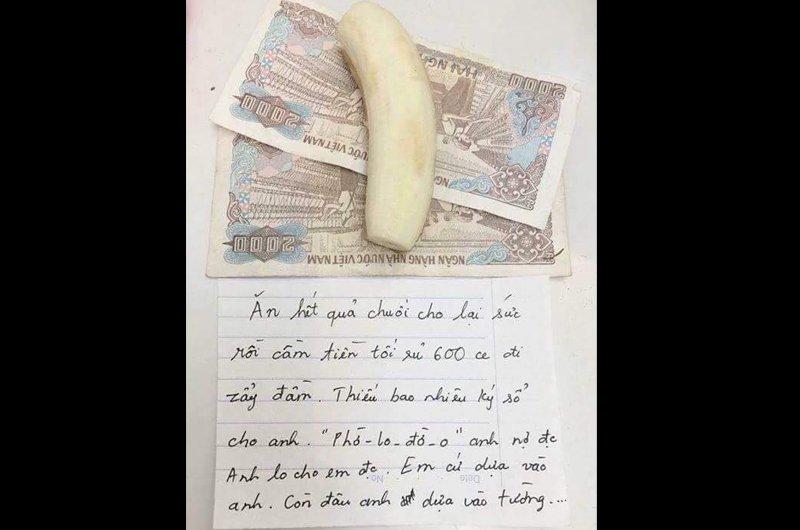 2000
HAI NG
NG
NƯỚC VIỆT NAM
2000
2000
NGÂN HÀNG NHÀ NƯỚC VIỆT NAM
Ăn hết quả chuối cho lại sức
rồi cầm tiền tối sử 600 ce đi
zẩy đầm. Thiếu bao nhiêu ký sổ
cho anh. "Phò-lo-đò-o" anh nợ đc
Anh lo cho em đc. Em cứ dựa vào
No. Date
anh. Còn đâu anh dựa vào tường....